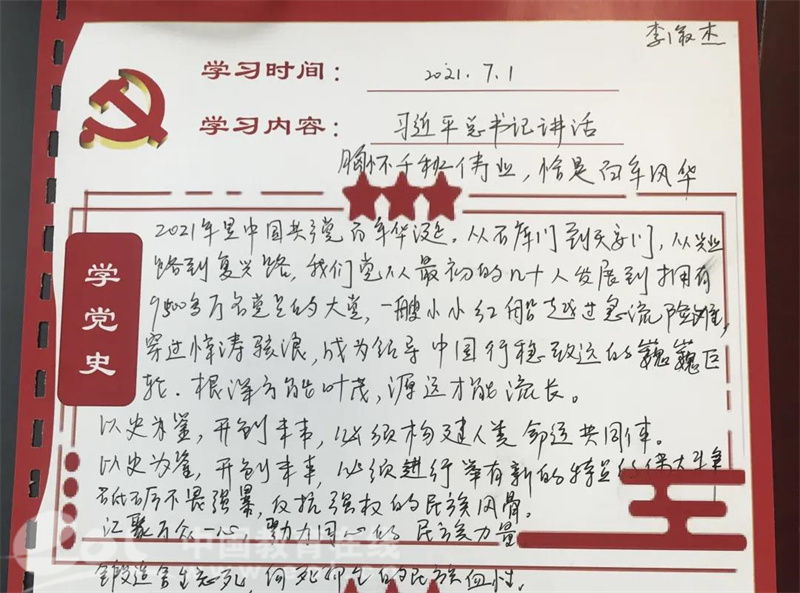 李淑杰
学习时间： 2021. 7. 1
学习内容： 习近平总书记讲话
胸怀千秋伟业，恰是百年风华
学党史
2021年是中国共产党百年华诞。从石库门到天安门，从兴业
路到复兴路，我们党从最初的几十人发展到拥有
9500多万名党员的大党，一艘小小红船越过急流险滩，
穿过惊涛骇浪，成为领导中国行稳致远的巍巍巨
轮. 根深方能叶茂，源远才能流长。
以史为鉴，开创未来，必须构建人类命运共同体。
以史为鉴，开创未来，必须进行具有新的特点的伟大斗争
不畏强暴，反抗强权的民族风骨。
汇聚万众一心，勠力同心的民族力量
锻造舍生忘死，向死而生的民族血性.
中国教育在线